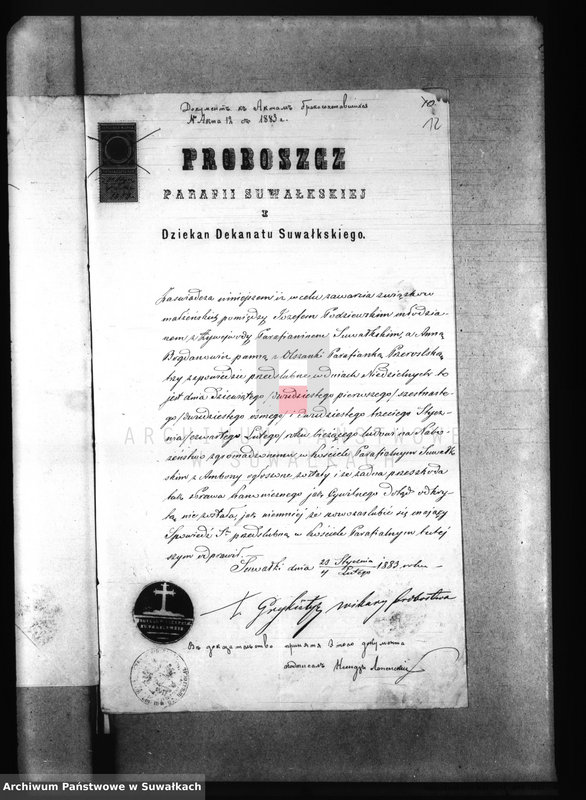 Документъ къ Актамъ
№ Акта 12 съ 1883 г.
12
PROBOSZCZ
PARAFII SUWAŁKSKIEJ
I
Dziekan Dekanatu Suwałkskiego.
Zaświadcza niniejszem iż w celu zawarcia związków
małżeńskich pomiędzy Józefem Podziewskim młodzia-
nem z Krzywejwody Parafianinem Suwałkskim, a Anną
Bogdanowic panną z Olszanki Parafianką Przeroslską
trzy zapowiedzie przedślubne w dniach Niedzielnych to
jest dnia Dziewiątego /dwudziestego pierwszego/ szesnaste-
go /dwudziestego ósmego/ i dwudziestego trzeciego Stycz-
nia /czwartego Lutego/ roku bieżącego ludowi na Nabo-
żeństwo zgromadzonemu w kościele Parafialnym Suwałk-
skim z Ambony ogłoszone zostały i że żadna przeszkoda
tak Prawa kanonicznego jak Cywilnego dotąd odkry-
tą nie została, jak niemniej że nowozaślubić się mający
Spowiedź Stą przedślubną w kościele Parafialnym tutej
szym odprawił.
Suwałki dnia 23 Stycznia / 4 Lutego 1883 roku
X wikary
Въ доказательство принятія этого документа
подписалъ Ксендзъ
ARCHIWUM PAŃSTWOWE
W SUWAŁKACH
Archiwum Państwowe w Suwałkach